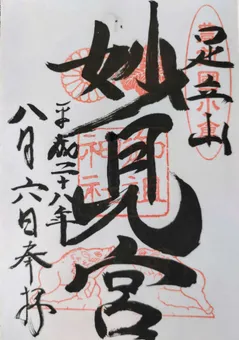 足立山
妙見宮
平成二十八年
八月六日奉拝
御祖
神社